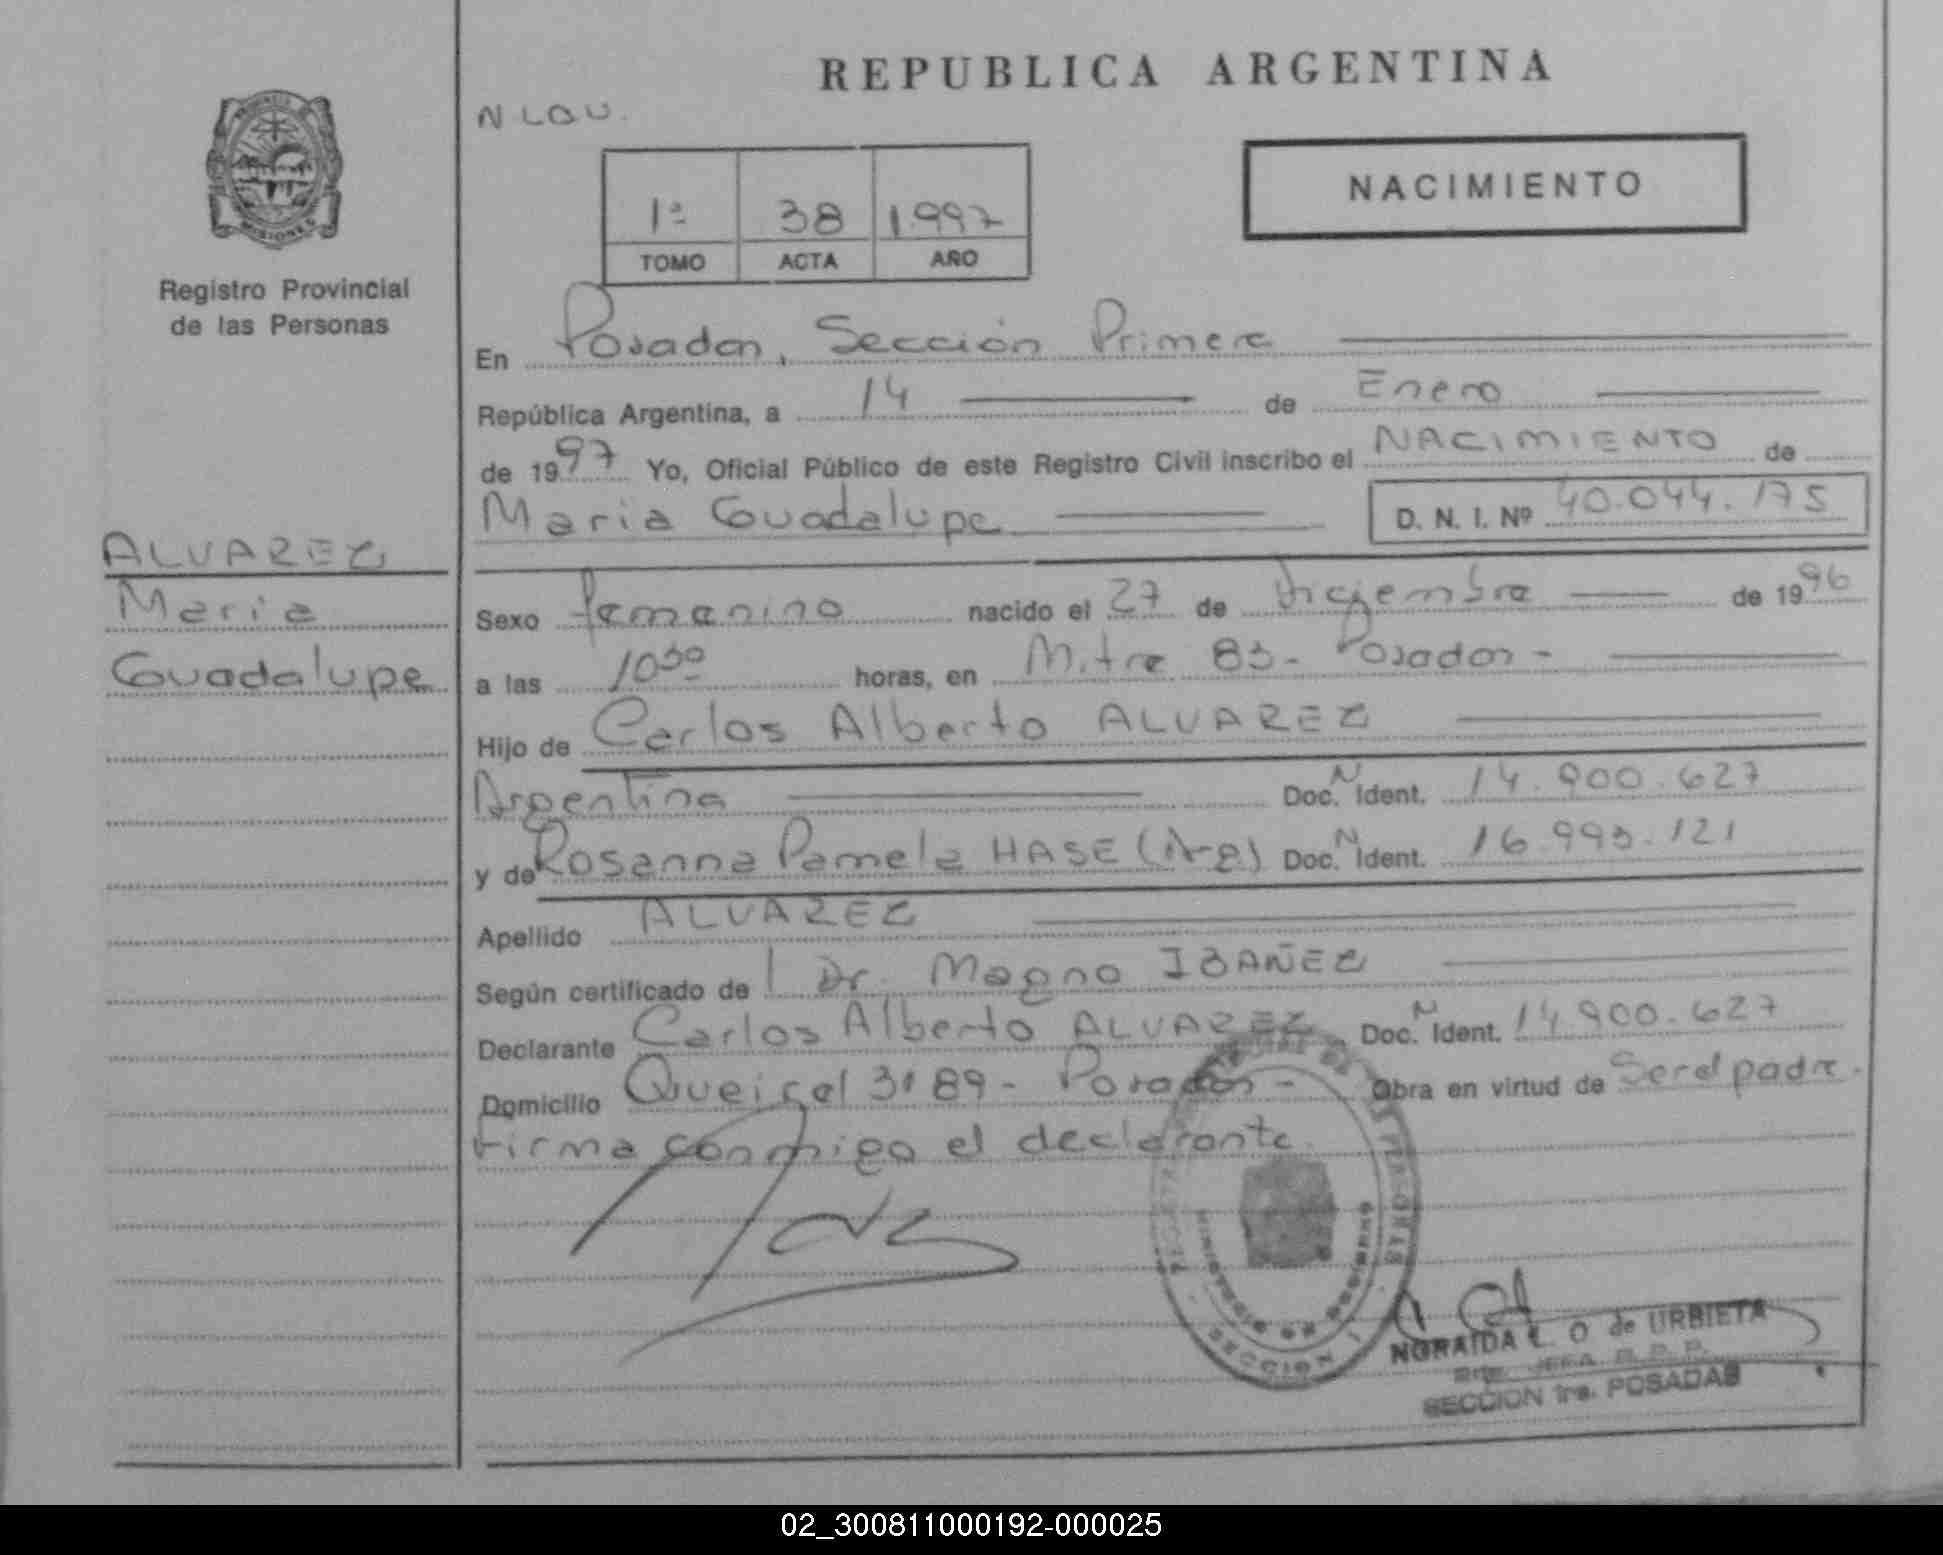 REPUBLICA ARGENTINA
PROVINCIA
MISIONES
Registro Provincial
de las Personas
1ª 38 1.997
TOMO ACTA AÑO
NACIMIENTO
En Posadas, Sección Primera
República Argentina, a 14 de Enero
de 1997 Yo, Oficial Público de este Registro Civil inscribo el NACIMIENTO de
Maria Guadalupe D. N. I. Nº 40.044.175
ALVAREZ
Maria
Guadalupe
Sexo femenino nacido el 27 de Diciembre de 1996
a las 10³⁰ horas, en Mitre 83- Posadas-
Hijo de Carlos Alberto ALVAREZ
Argentina Doc. N Ident. 14.900.627
y de Rosanna Pamela HASE (Arg) Doc. N Ident. 16.993.121
Apellido ALVAREZ
Según certificado de l Dr. Magno IBAÑEZ
Declarante Carlos Alberto ALVAREZ Doc. N Ident. 14.900.627
Domicilio 3189- Posadas- Obra en virtud de Ser el padre.
Firma conmigo el declarante.
MINISTERIO DE GOBIERNO
SECCION 1
NORAIDA L. O de URBIETA
JEFA R. P. P.
SECCION 1ra. POSADAS
02_300811000192-000025